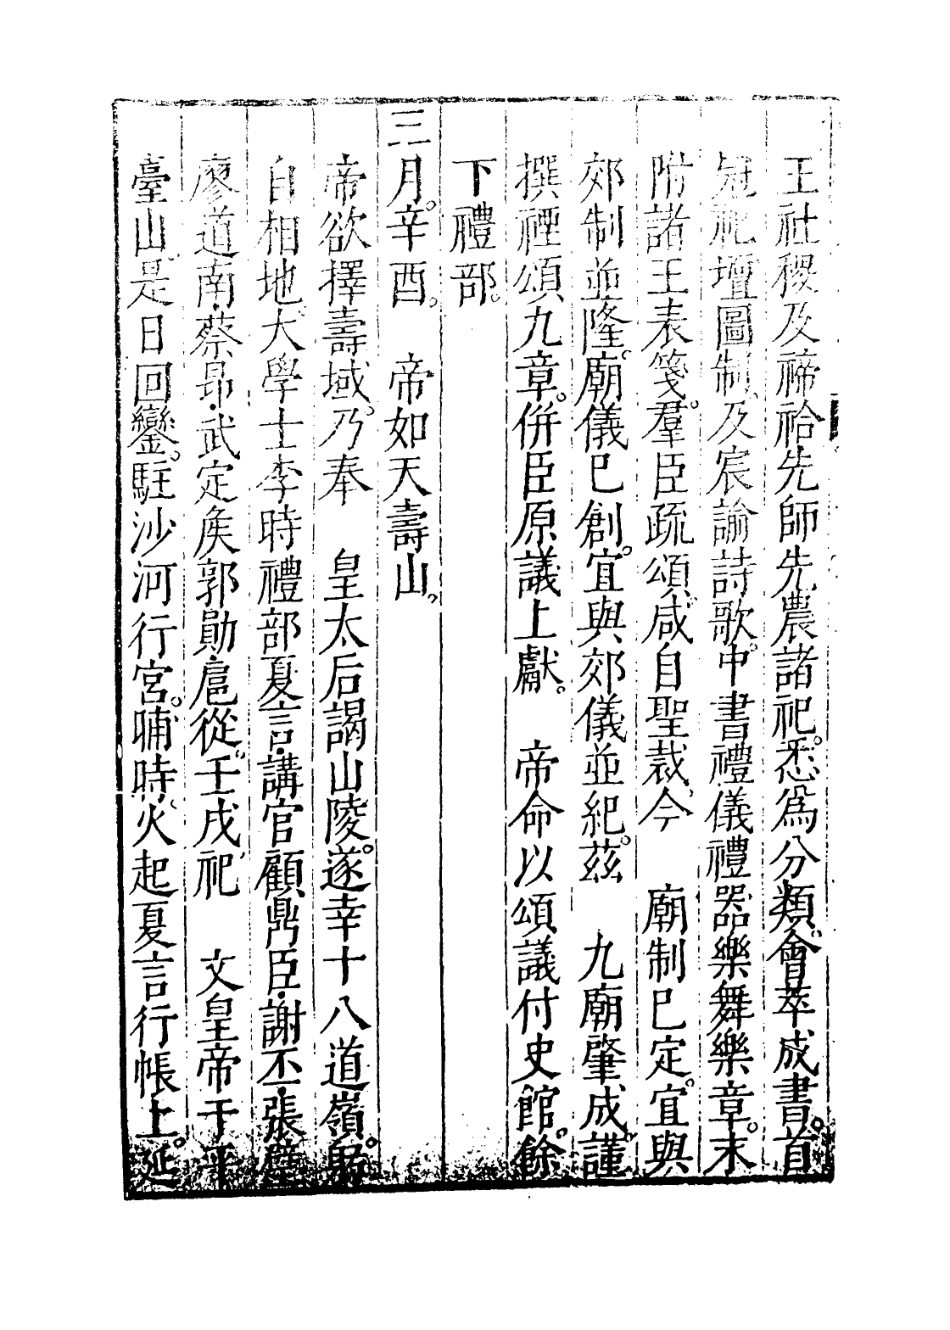 王社稷及禘祫先師先農諸祀。悉爲分類會萃成書。首
冠祀壇圖制及宸諭詩歌。中書禮儀禮器樂舞樂章。末
附諸王表箋。羣臣疏頌。咸自聖裁。今　廟制已定。宜與
郊制並隆。廟儀已創。宜與郊儀並紀。茲　九廟肇成。謹
撰禋頌九章。併臣原議上獻。　帝命以頌議付史館。餘
下禮部。
三月。辛酉。　帝如天壽山。
帝欲擇壽域。乃奉　皇太后謁山陵。遂幸十八道嶺。
自相地。大學士李時禮部夏言．講官顧鼎臣．謝丕．張
廖道南．蔡昂．武定矦郭勛．扈從。壬戌祀　文皇帝于
臺山。是日回鑾。駐沙河行宮。晡時。火起夏言行帳上。延